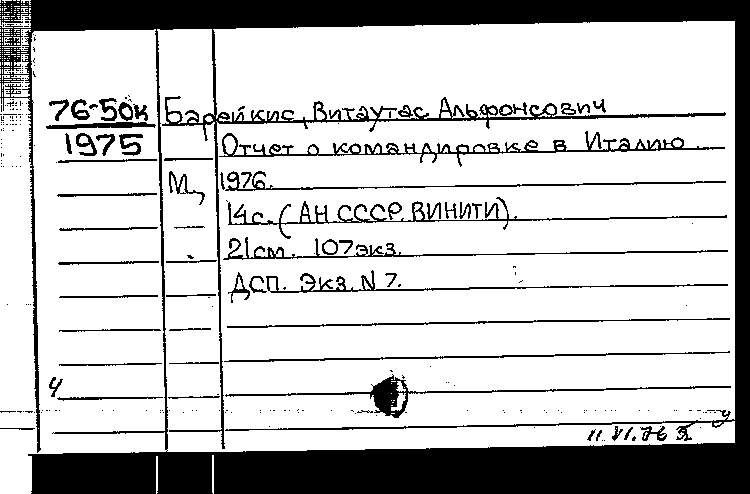 76-50к Барейкис, Витаутас Альфонсович
1975 Отчет о командировке в Италию.
М., 1976.
14с. (АН СССР. ВИНИТИ).
21см. 107экз.
ДСП. Экз. N 7.
ч
11.VI.76